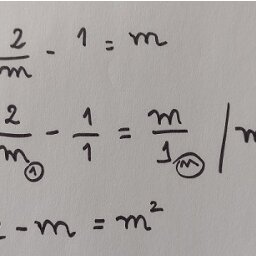 2/m - 1 = m
2/m ① - 1/1 = m/1 ⓜ | m
- m = m²